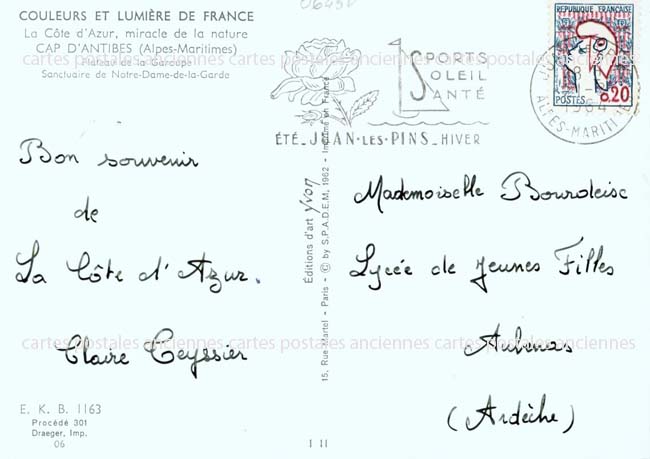 COULEURS ET LUMIÈRE DE FRANCE
La Côte d'Azur, miracle de la nature
CAP D'ANTIBES (Alpes-Maritimes)
Plateau de la Garoupe
Sanctuaire de Notre-Dame-de-la-Garde
cartes postales anciennes cartes postales anciennes cartes postales anciennes
SPORTS
SOLEIL
SANTÉ
ÉTÉ_JUAN-LES-PINS_HIVER
REPUBLIQUE FRANÇAISE
POSTES
0.20
1964
ALPES-MARITIMES
Bon souvenir
de
La Côte d'Azur.
Claire Ceyssier
Éditions d'art yvon
15, Rue Martel - Paris - © by S.P.A.D.E.M, 1962 - Imprimé en France
Mademoiselle Bourdeisc
Lycée de Jeunes Filles
Aubenas
(Ardèche)
cartes postales anciennes cartes postales anciennes cartes postales anciennes
E. K. B. 1163
Procédé 301
Draeger, Imp.
06
1 11